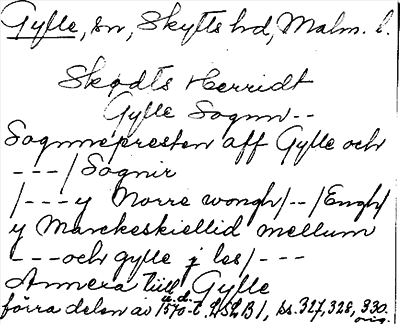 Gylle, sn, Skytts hd, Malm. l.
Skødts Herridt
Gylle Sognn--
Sognnepresten aff Gylle och
---/Sognir
/---y Norre wongh/--/Engh/
y Marckeskiellid mellum
---och gylle j les/---
Annexa till Gylle
förra delen av 1570-t. LSLB 1, ss. 327, 328, 330.